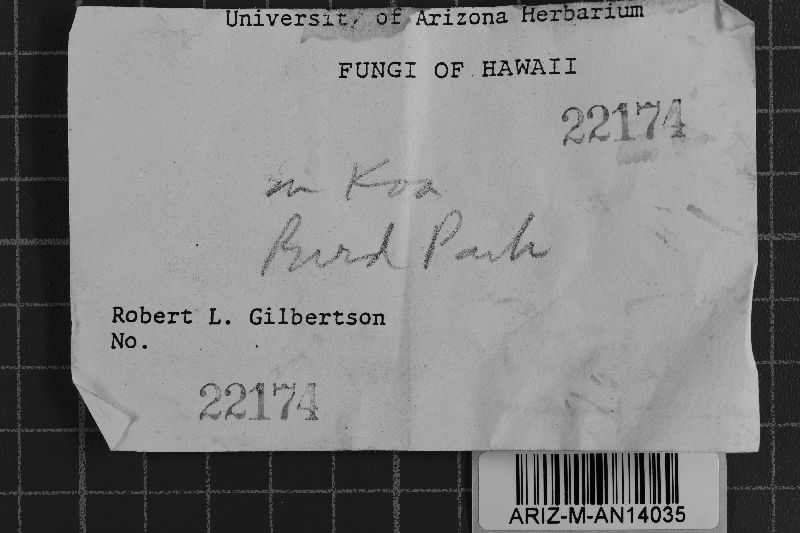 University of Arizona Herbarium
FUNGI OF HAWAII
22174
on Koa
Bird Park
Robert L. Gilbertson
No.
22174
ARIZ-M-AN14035